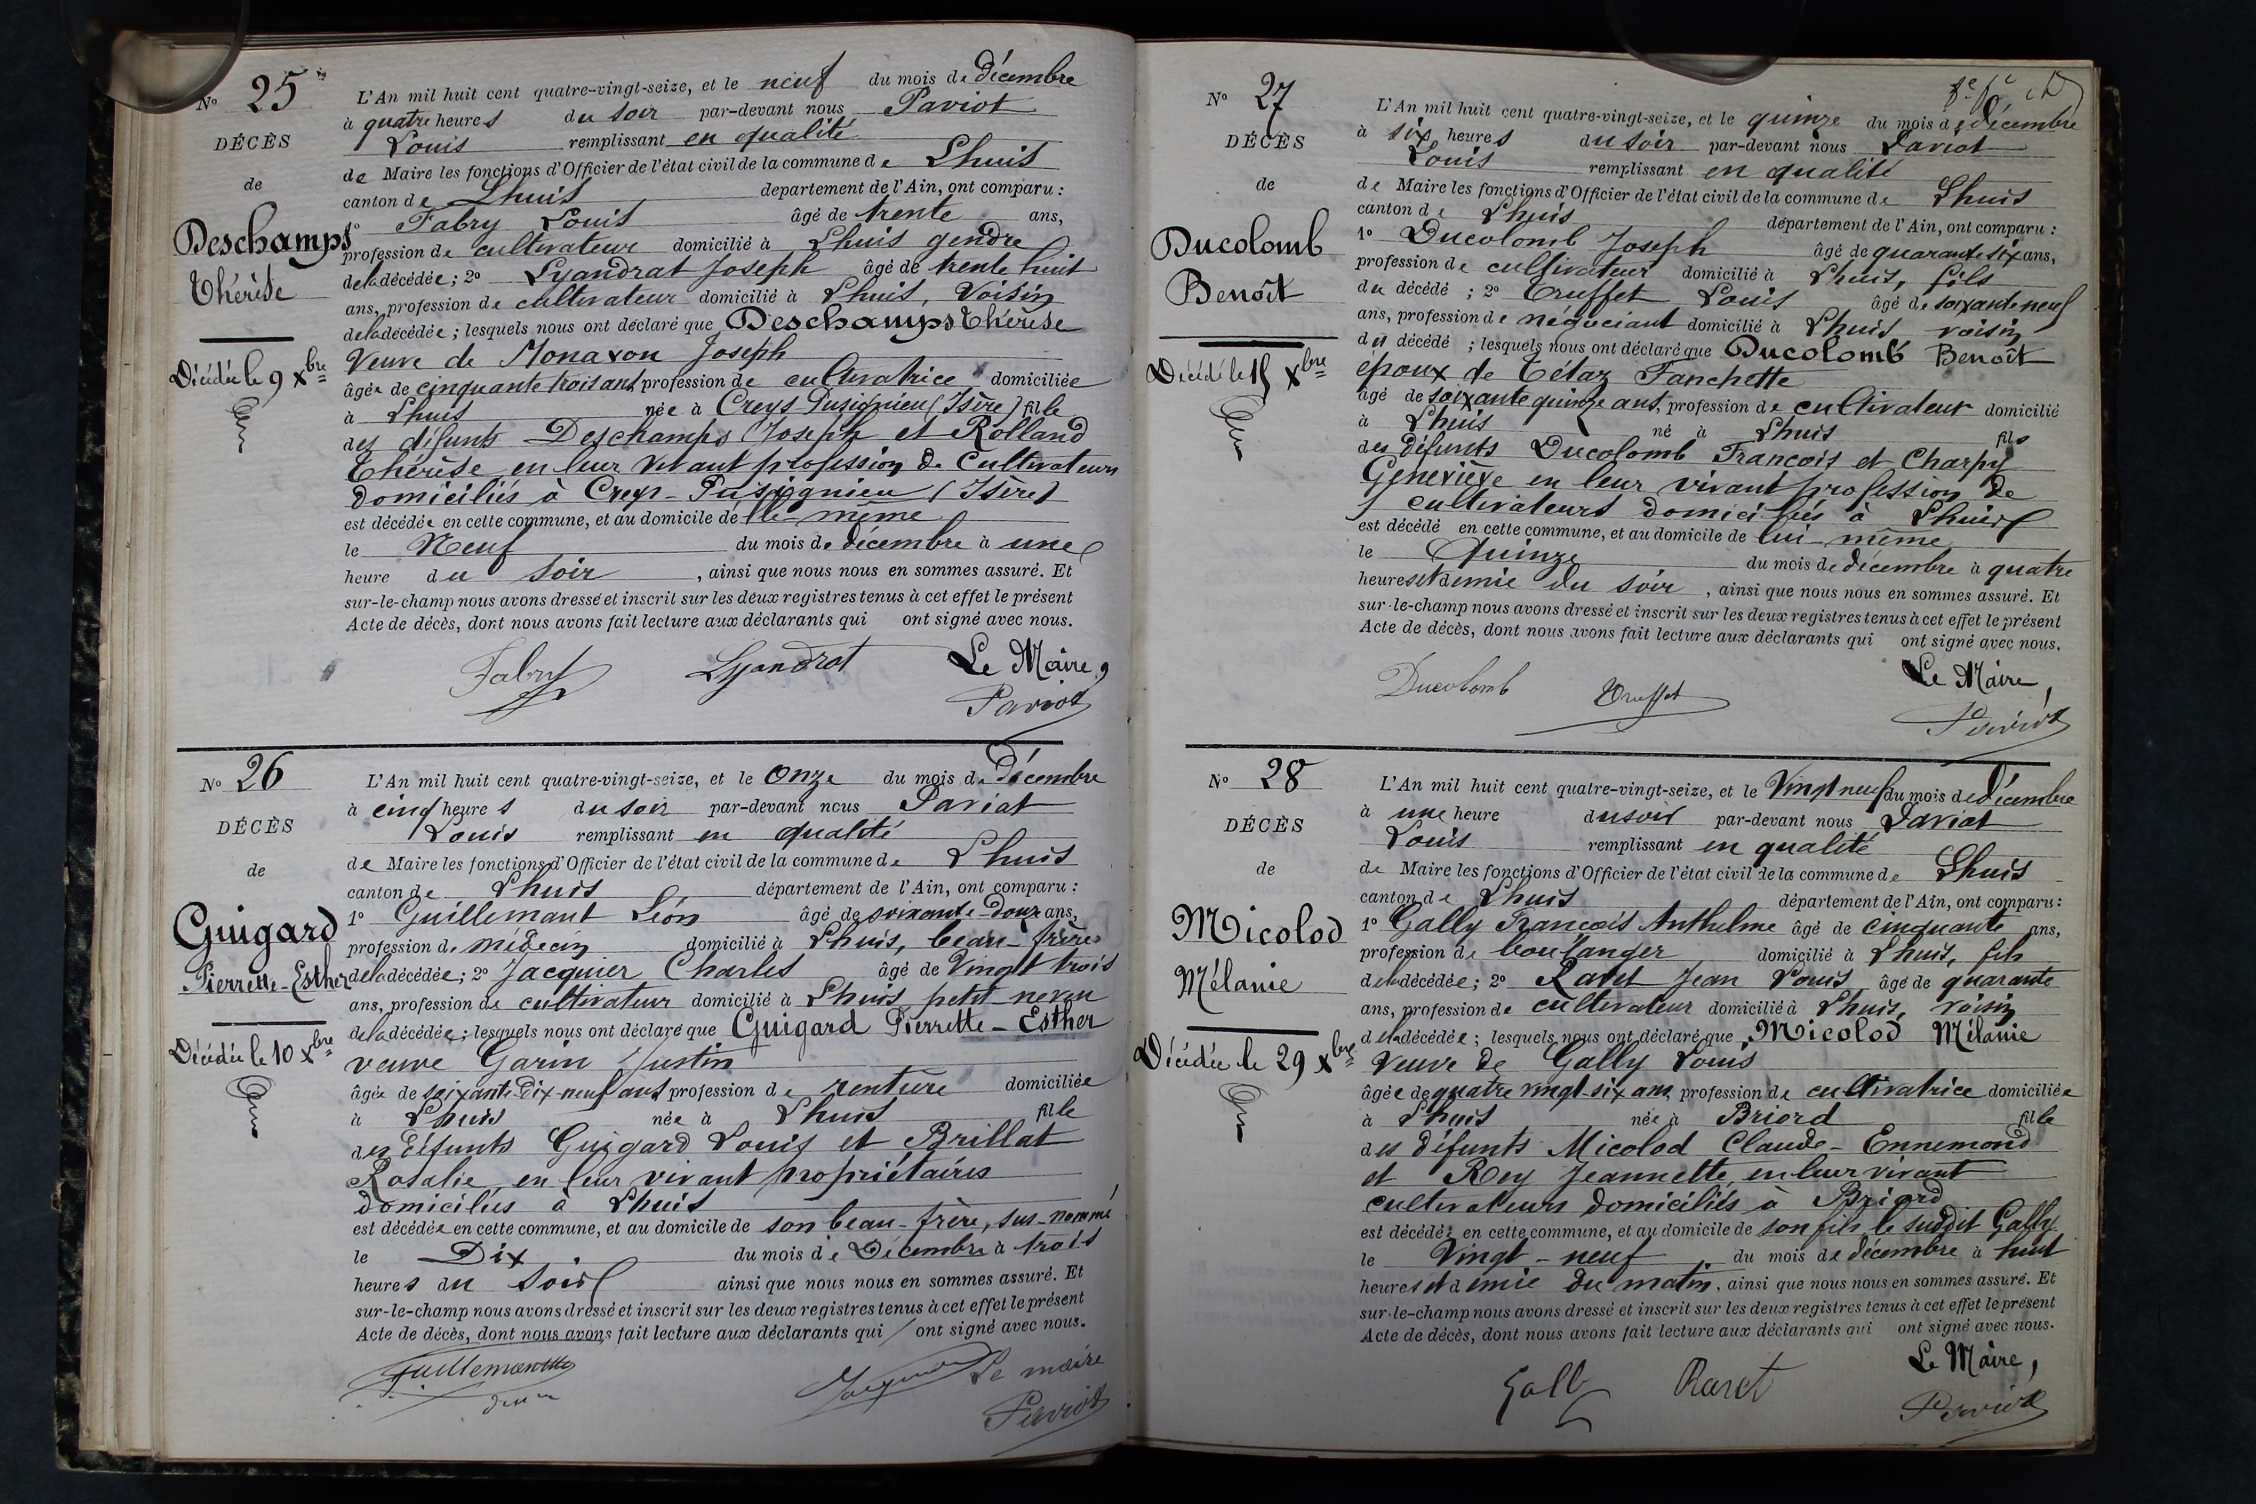 N° 25
DÉCÈS
de
Deschamps
Thérèse
Décédée le 9 Xbre
L'An mil huit cent quatre-vingt-seize, et le neuf du mois de décembre
à quatre heures du soir par-devant nous Paviot
Louis remplissant en qualité
de Maire les fonctions d'Officier de l'état civil de la commune de Lhuis
canton de Lhuis département de l'Ain, ont comparu :
1° Fabry Louis âgé de trente ans,
profession de cultivateur domicilié à Lhuis gendre
de la décédée ; 2° Lyandrat Joseph âgé de trente huit
ans, profession de cultivateur domicilié à Lhuis, Voisin
de la décédée ; lesquels nous ont déclaré que Deschamps Thérèse
Veuve de Monavon Joseph
âgée de cinquante trois ans profession de cultivatrice domiciliée
à Lhuis née à Creys Pusignieu (Isère) fille
des défunts Deschamps Joseph et Rolland
Thérèse en leur vivant profession de Cultivateurs
domiciliés à Creys-Pusignieu (Isère)
est décédée en cette commune, et au domicile de elle même
le Neuf du mois de décembre à une
heure du soir , ainsi que nous nous en sommes assuré. Et
sur-le-champ nous avons dressé et inscrit sur les deux registres tenus à cet effet le présent
Acte de décès, dont nous avons fait lecture aux déclarants qui ont signé avec nous.
Fabry Lyandrat Le Maire,
Paviot
N° 26
DÉCÈS
de
Guigard
Pierrette-Esther
Décédée le 10 Xbre
L'An mil huit cent quatre-vingt-seize, et le onze du mois de Décembre
à cinq heures du soir par-devant nous Paviot
Louis remplissant en qualité
de Maire les fonctions d'Officier de l'état civil de la commune de Lhuis
canton de Lhuis département de l'Ain, ont comparu :
1° Guillemaut Léon âgé de soixante-douze ans,
profession de médecin domicilié à Lhuis, beau-frère
de la décédée ; 2° Jacquier Charles âgé de Vingt trois
ans, profession de cultivateur domicilié à Lhuis petit-neveu
de la décédée ; lesquels nous ont déclaré que Guigard Pierrette-Esther
veuve Garin Justin
âgée de soixante-dix-neuf ans profession de rentière domiciliée
à Lhuis née à Lhuis fille
des défunts Guigard Louis et Brillat
Rosalie en leur vivant propriétaires
domiciliés à Lhuis
est décédée en cette commune, et au domicile de son beau-frère, sus-nommé
le Dix du mois de Décembre à trois
heures du soir ainsi que nous nous en sommes assuré. Et
sur-le-champ nous avons dressé et inscrit sur les deux registres tenus à cet effet le présent
Acte de décès, dont nous avons fait lecture aux déclarants qui ont signé avec nous.
Guillemaut Jacquier Le maire
Paviot
N° 27
DÉCÈS
de
Ducolomb
Benoît
Décédé le 15 Xbre
L'An mil huit cent quatre-vingt-seize, et le quinze du mois de décembre
à six heures du soir par-devant nous Paviot
Louis remplissant en qualité
de Maire les fonctions d'Officier de l'état civil de la commune de Lhuis
canton de Lhuis département de l'Ain, ont comparu :
1° Ducolomb Joseph âgé de quarante six ans,
profession de cultivateur domicilié à Lhuis, fils
du décédé ; 2° Truffet Louis âgé de soixante neuf
ans, profession de négociant domicilié à Lhuis voisin
du décédé ; lesquels nous ont déclaré que Ducolomb Benoît
époux de Tétaz Fanchette
âgé de soixante quinze ans, profession de cultivateur domicilié
à Lhuis né à Lhuis fils
des défunts Ducolomb François et Charpy
Geneviève en leur vivant profession de
cultivateurs domiciliés à Lhuis
est décédé en cette commune, et au domicile de lui même
le Quinze du mois de décembre à quatre
heures et demie du soir , ainsi que nous nous en sommes assuré. Et
sur-le-champ nous avons dressé et inscrit sur les deux registres tenus à cet effet le présent
Acte de décès, dont nous avons fait lecture aux déclarants qui ont signé avec nous.
Ducolomb Truffet Le Maire,
Paviot
N° 28
DÉCÈS
de
Micolod
Mélanie
Décédée le 29 Xbre
L'An mil huit cent quatre-vingt-seize, et le Vingt neuf du mois de décembre
à une heure du soir par-devant nous Paviot
Louis remplissant en qualité
de Maire les fonctions d'Officier de l'état civil de la commune de Lhuis
canton de Lhuis département de l'Ain, ont comparu :
1° Gally François Anthelme âgé de cinquante ans,
profession de boulanger domicilié à Lhuis, fils
de la décédée ; 2° Ravet Jean Louis âgé de quarante
ans, profession de cultivateur domicilié à Lhuis, voisin
de la décédée ; lesquels nous ont déclaré que Micolod Mélanie
Veuve de Gally Louis
âgée de quatre vingt-six ans profession de cultivatrice domiciliée
à Lhuis née à Briord fille
des défunts Micolod Claude-Ennemond
et Rey Jeannette, en leur vivant
cultivateurs domiciliés à Briord
est décédée en cette commune, et au domicile de son fils le susdit Gally
le Vingt-neuf du mois de décembre à huit
heures et demie du matin, ainsi que nous nous en sommes assuré. Et
sur-le-champ nous avons dressé et inscrit sur les deux registres tenus à cet effet le présent
Acte de décès, dont nous avons fait lecture aux déclarants qui ont signé avec nous.
Gally Ravet Le Maire,
Paviot